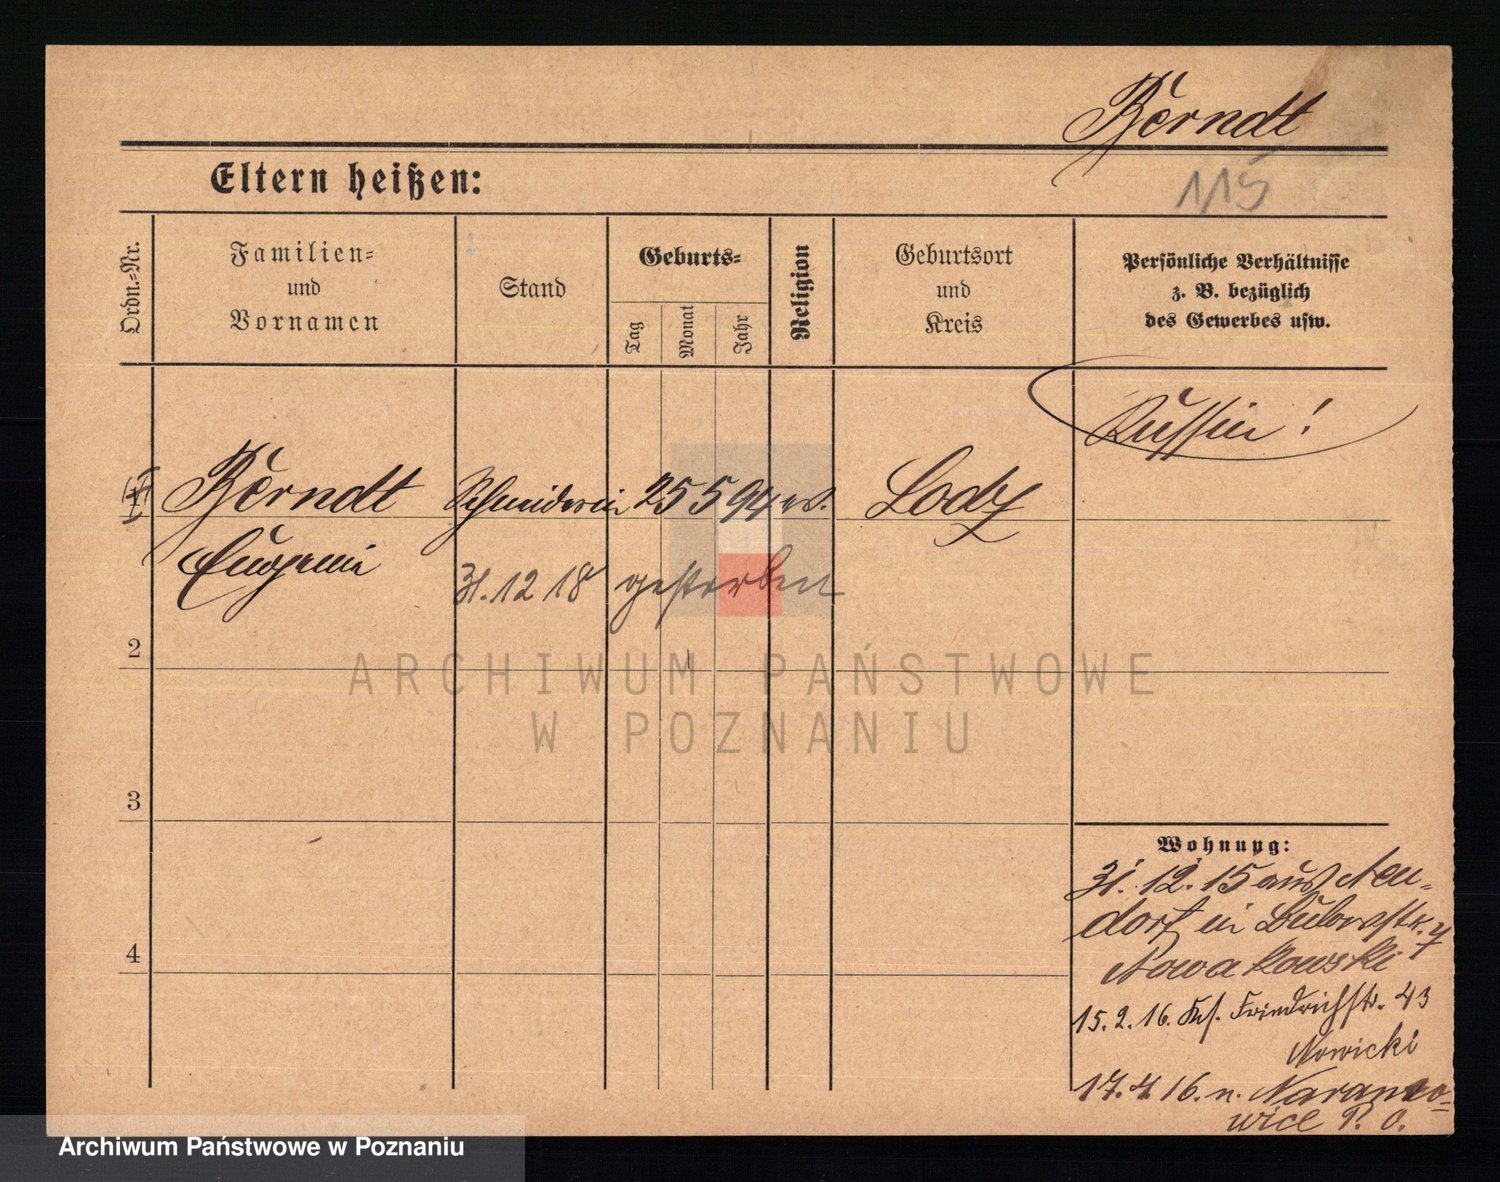 Berndt
115
Eltern heißen:
Ordn.-Nr.
Familien-
und
Vornamen
Stand
Geburts-
Tag
Monat
Jahr
Religion
Geburtsort
und
Kreis
Persönliche Verhältnisse
z. B. bezüglich
des Gewerbes usw.
Russin!
Berndt Schneiderin 25 5 94 ev. Lodz
Eugenie
31.12 18 gestorben
2
3
4
Wohnung:
31.12.15 aus Neu-
dorf in Bukerstr. 4
Nowakowski
15.2.16. Friedrichstr. 43
Nowicki
17.4.16. n. Naramo-
wice P. O.
ARCHIWUM PAŃSTWOWE
W POZNANIU
Archiwum Państwowe w Poznaniu